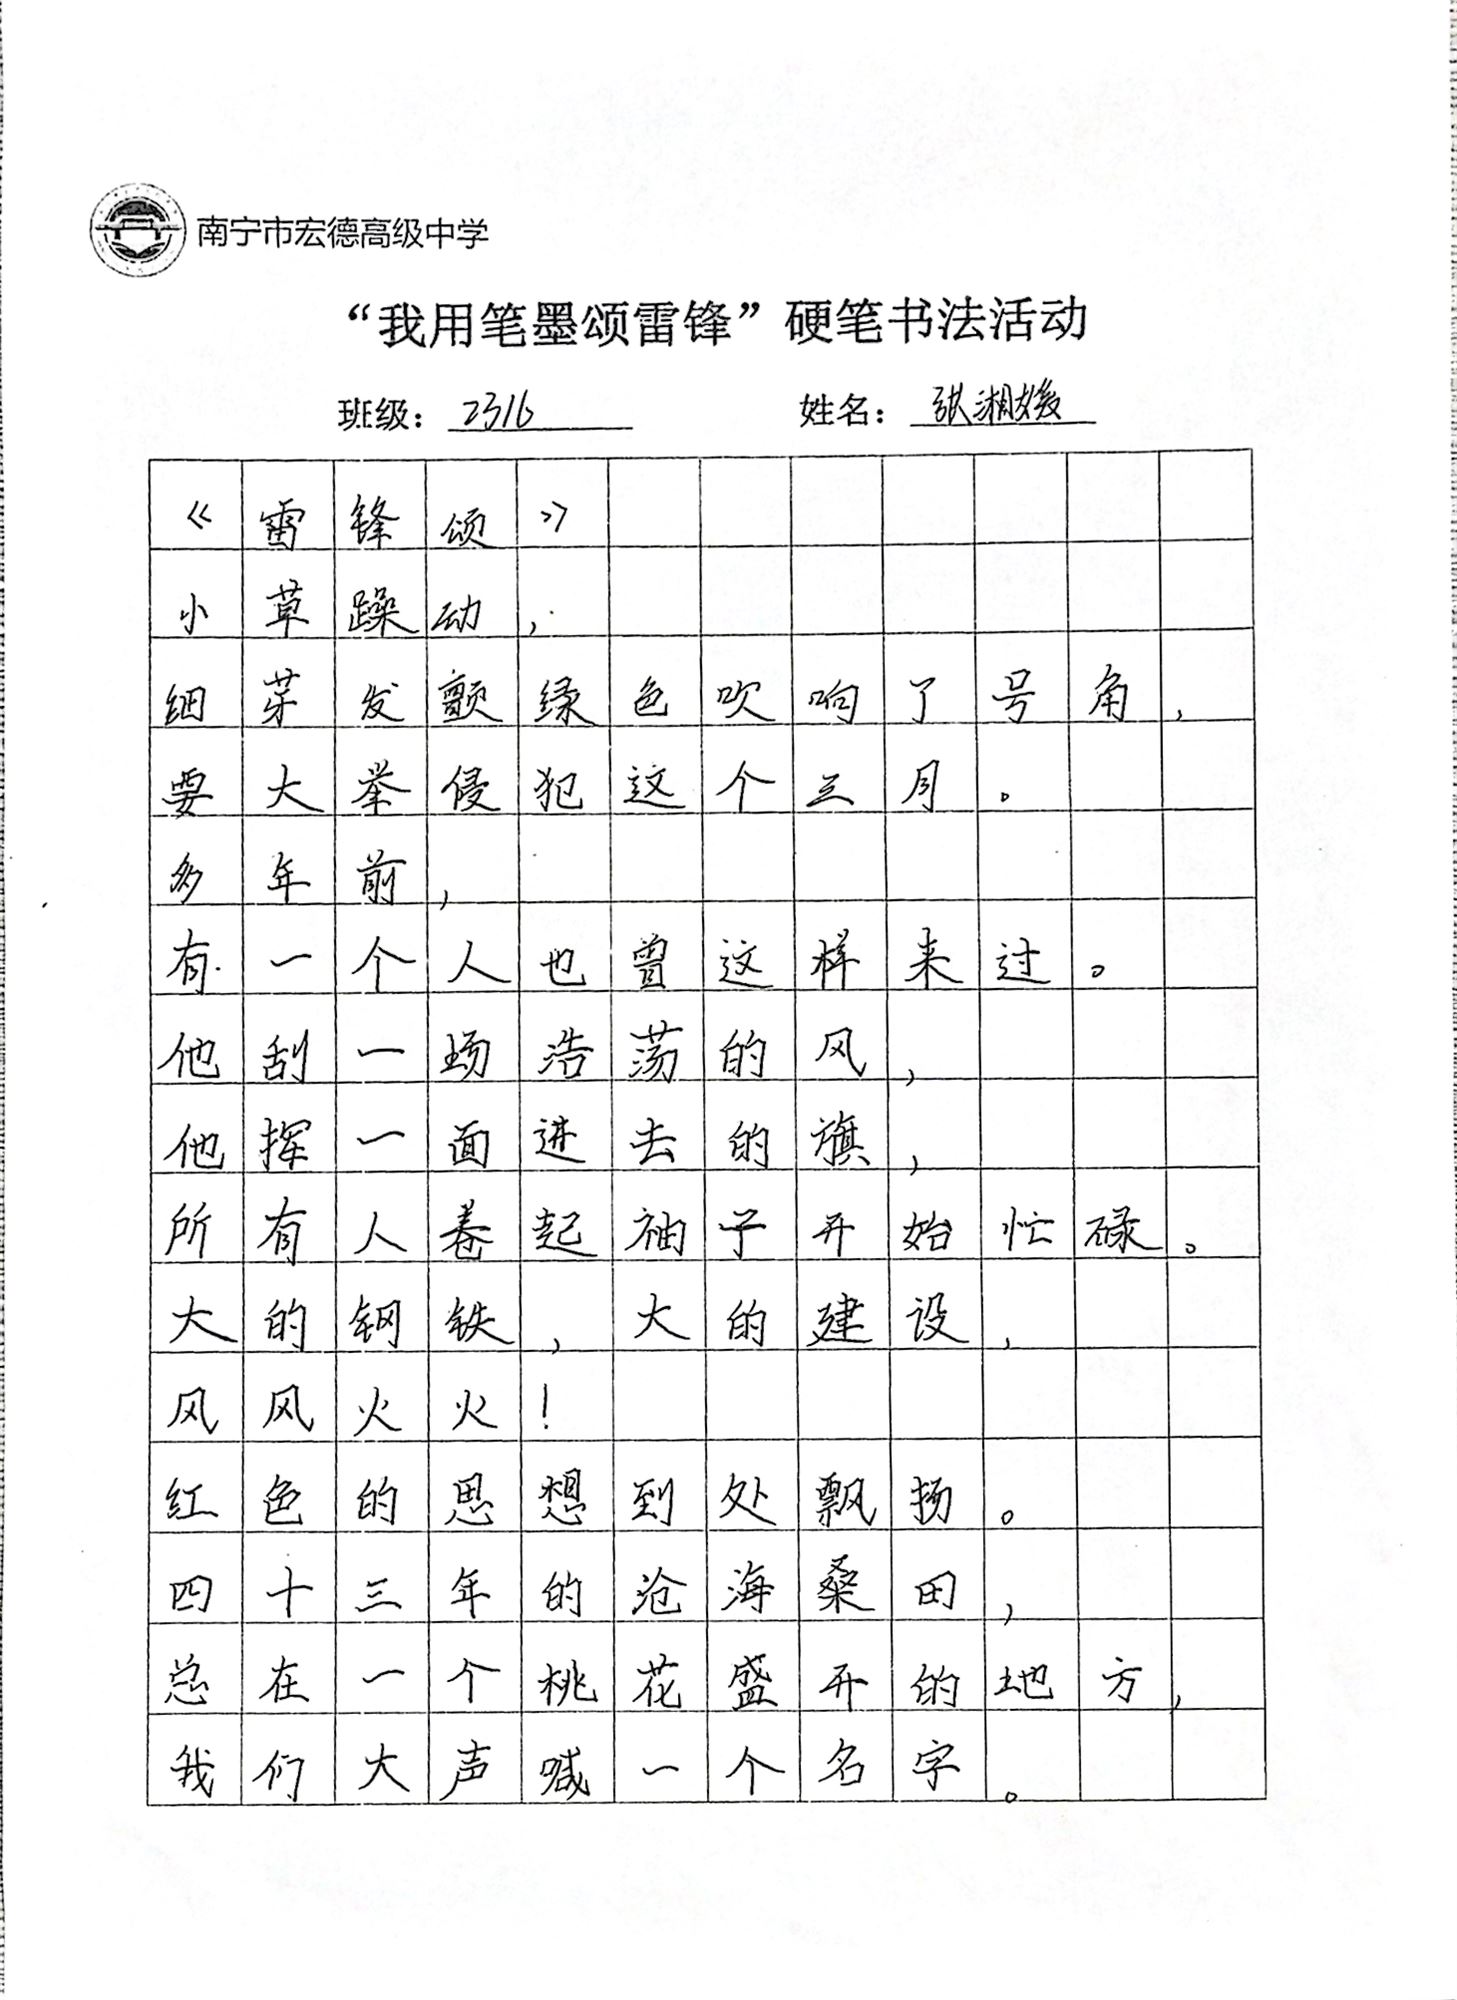 南宁市宏德高级中学
“我用笔墨颂雷锋”硬笔书法活动
班级：2316 姓名：张湘媛
《雷锋颂》
小草躁动，
细芽发颤绿色吹响了号角，
要大举侵犯这个三月。
多年前，
有一个人也曾这样来过。
他刮一场浩荡的风，
他挥一面进去的旗，
所有人卷起袖子开始忙碌。
大的钢铁，大的建设，
风风火火！
红色的思想到处飘扬。
四十三年的沧海桑田，
总在一个桃花盛开的地方，
我们大声喊一个名字。